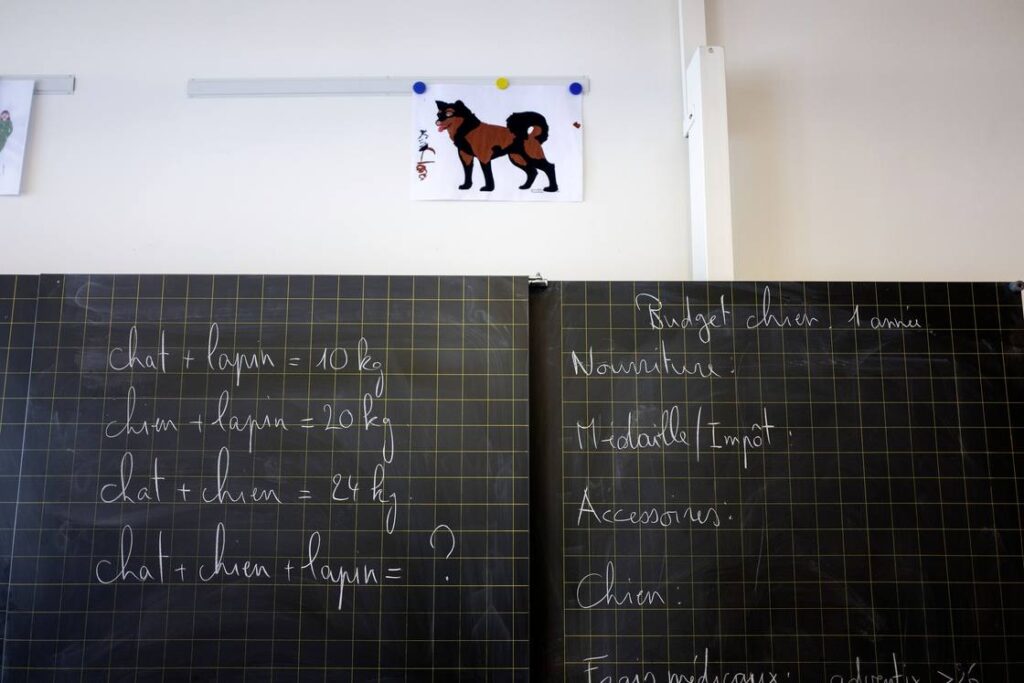 chat + lapin = 10 kg
chien + lapin = 20 kg
chat + chien = 24 kg.
chat + chien + lapin = ?
Budget chien. 1 année.
Nourriture :
Médaille/Impôt :
Accessoires :
Chien :
Frais médicaux :